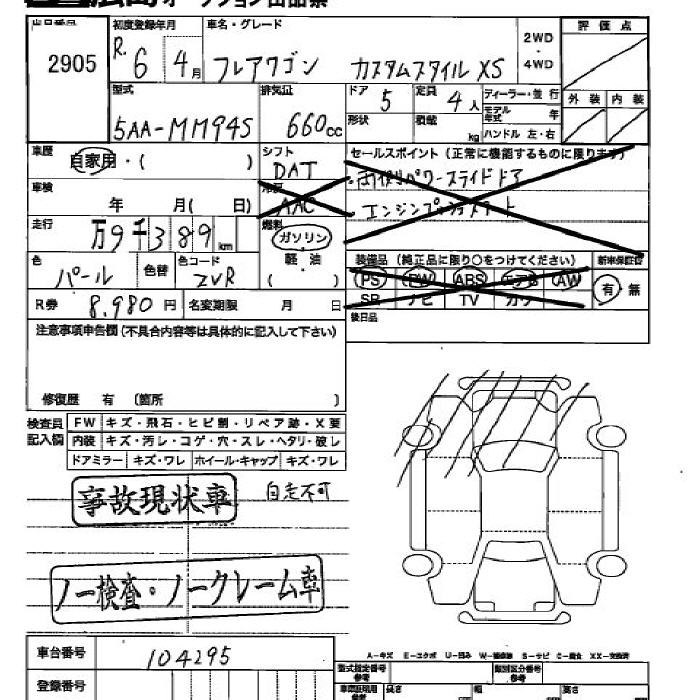 広島オークション出品票
出品番号 初度登録年月 車名・グレード 2WD・4WD 評価点
2905 R.6 4月 フレアワゴン カスタムスタイル XS
型式 排気量 ドア 5 定員 4人 ディーラー・並行 外装 内装
5AA-MM94S 660cc 形状 積載 kg モデル年式 年
ハンドル 左・右
車歴 シフト セールスポイント(正常に機能するものに限ります)
自家用・( ) DAT
・両側パワースライドドア
車検 冷房
年 月( 日) AAC ・エンジンプッシュスタート
走行 燃料
万9千389km ガソリン
色 色替 色コード 軽・油 装備品(純正品に限り○をつけてください) 新車保証書
パール ZVR ( ) PS PW ABS エアB AW 有・無
SR ナビ TV カワ
R券 8,980円 名変期限 月 日 後日品
注意事項申告欄(不具合内容等は具体的に記入して下さい)
修復歴 有 〔箇所 〕
検査員記入欄 FW キズ・飛石・ヒビ割・リペア跡・X要
内装 キズ・汚レ・コゲ・穴・スレ・ヘタリ・破レ
ドアミラー キズ・ワレ ホイール・キャップ キズ・ワレ
事故現状車 自走不可
ノー検査・ノークレーム車
車台番号 104295
A-キズ E-エクボ U-凹み W-補修跡 S-サビ C-腐食 XX-交換済
型式指定番号 参考 類別区分番号 参考
登録番号 長さ 幅 高さ